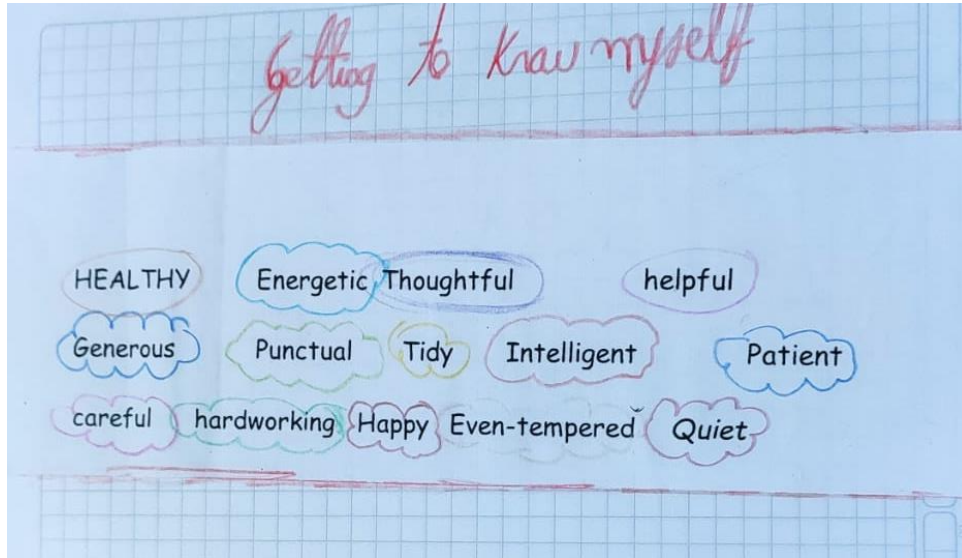 Getting to Knau myself
HEALTHY Energetic Thoughtful helpful
Generous Punctual Tidy Intelligent Patient
careful hardworking Happy Even-tempered Quiet